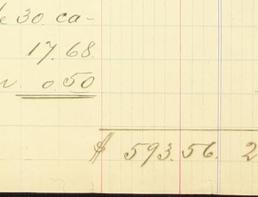 30 ca-
17.68
0 50
$ 593.56. 2